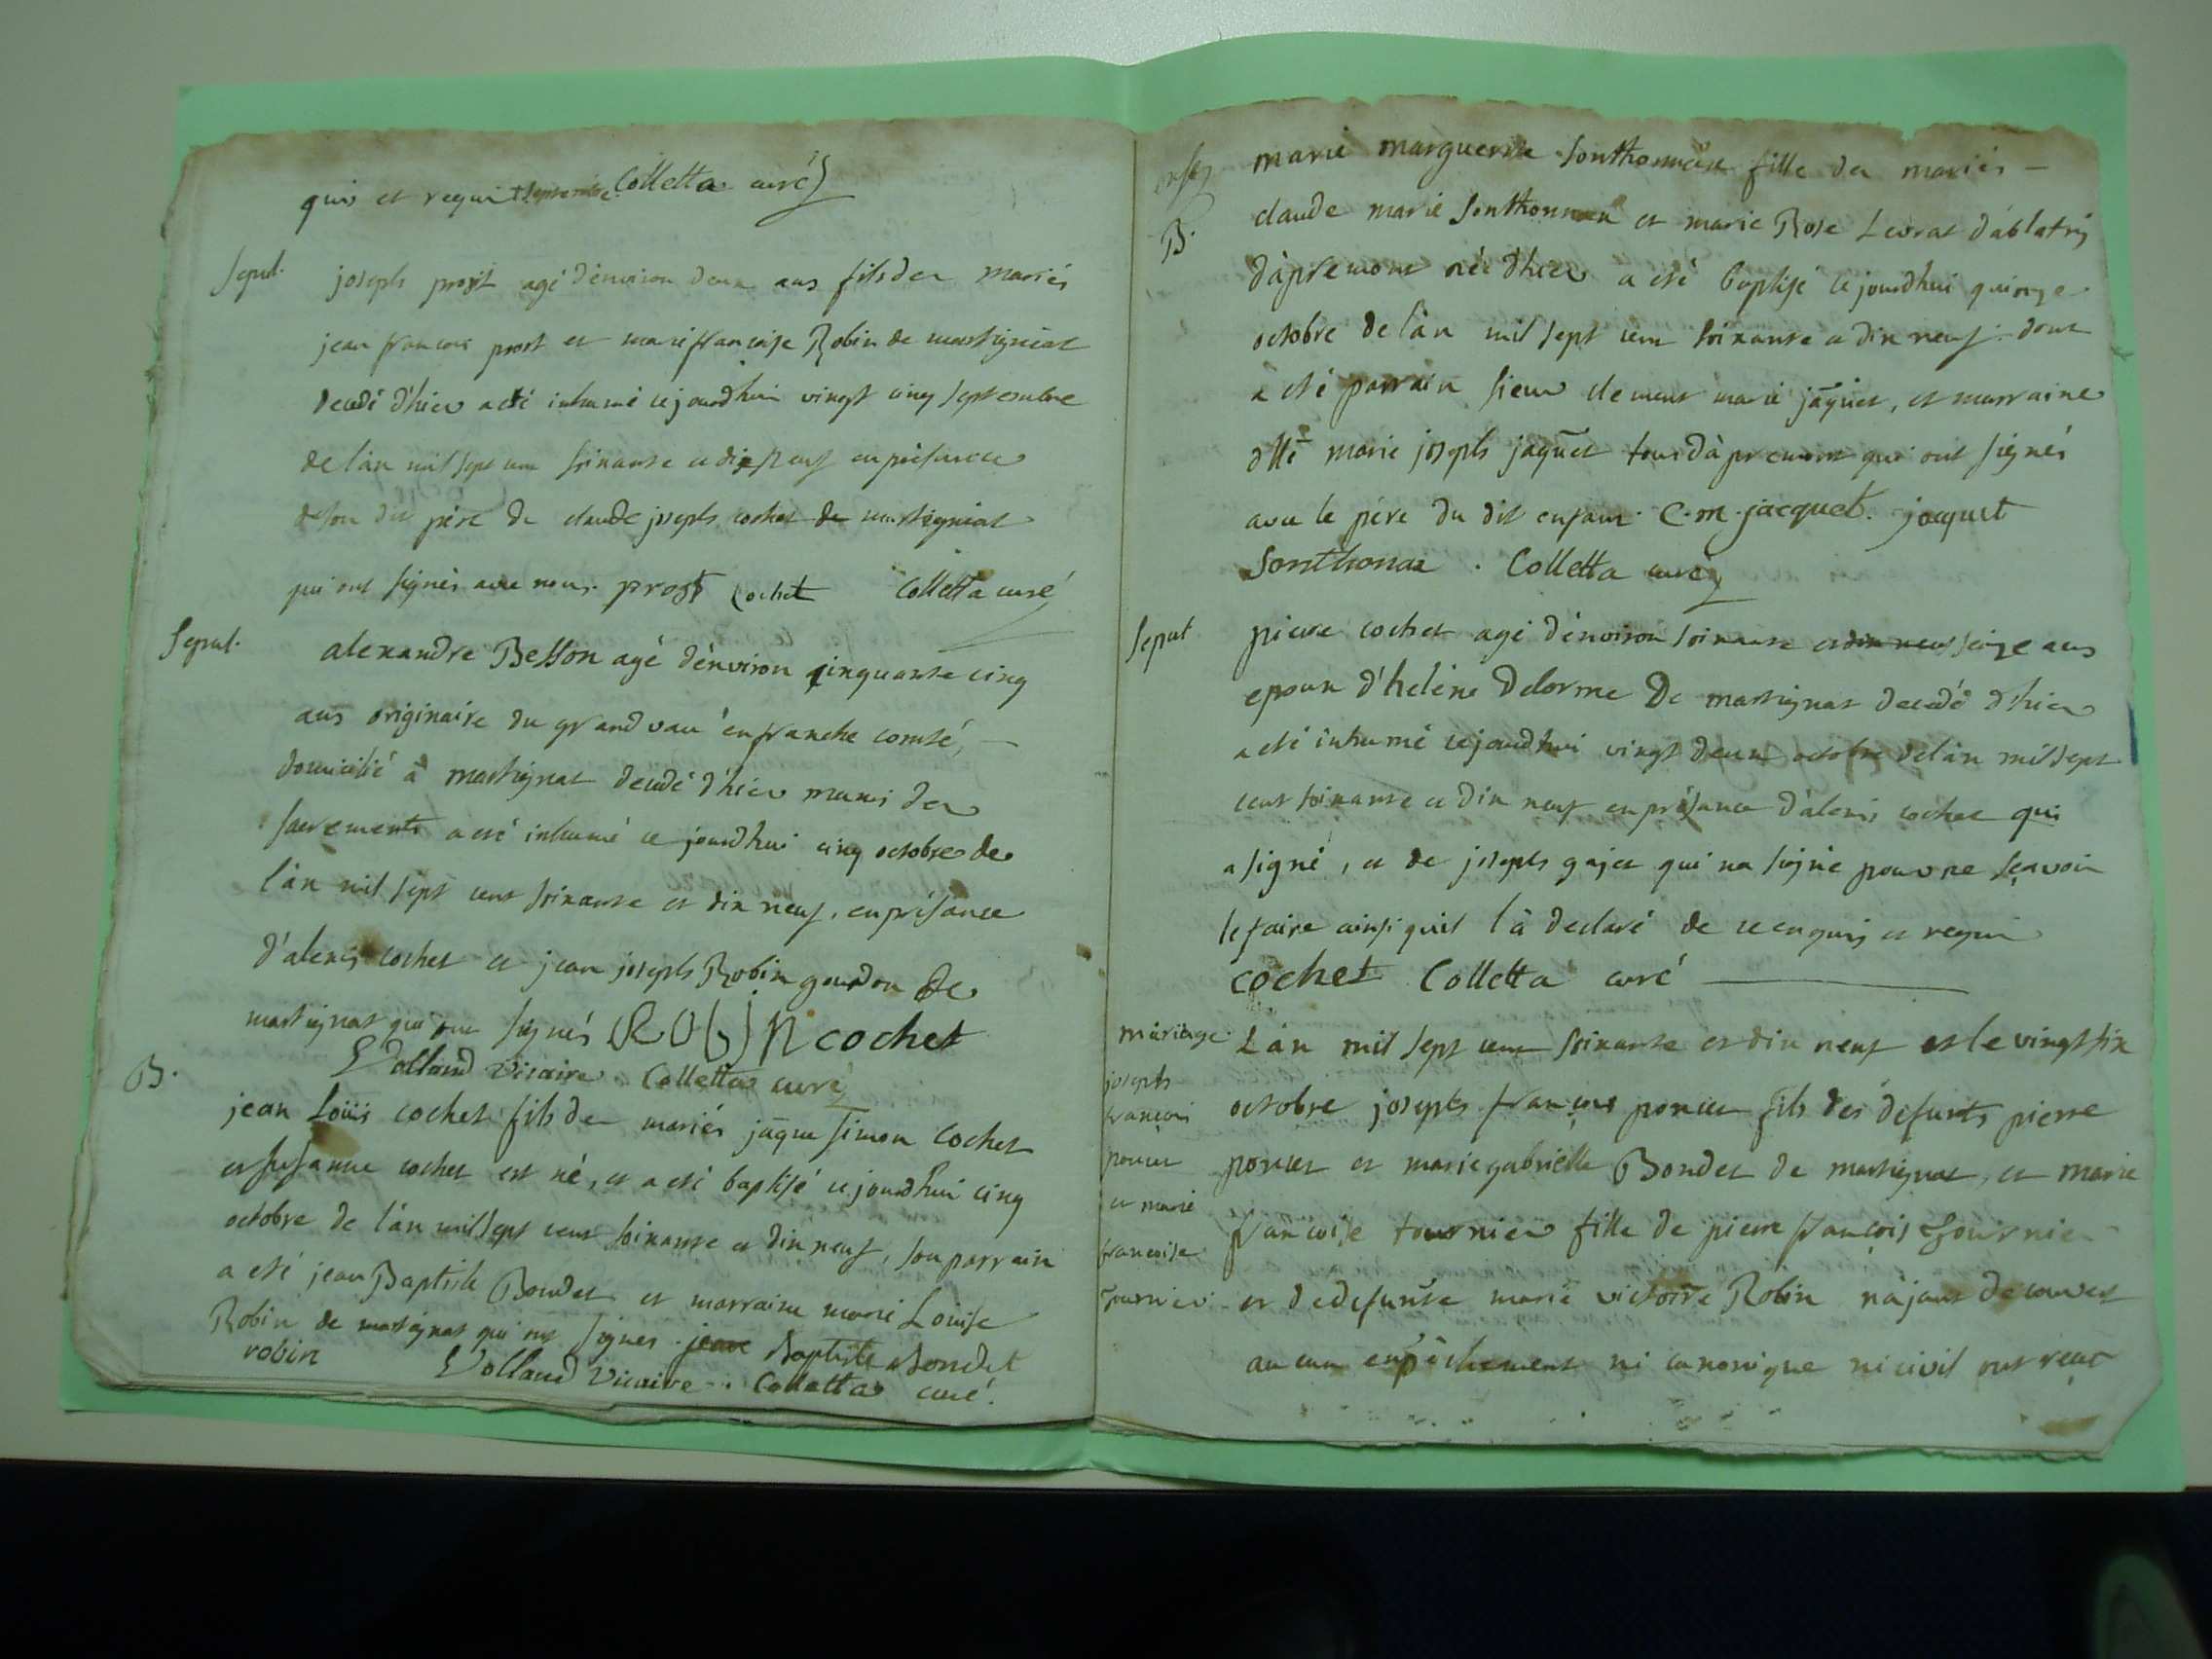 quis et requi +septembre Colletta curé
sepul. joseph prost agé d'environ deux ans fils des mariés
jean francois prost et marie francoise Robin de martigniat
decedé d'hier a eté inhumé cejourdhui vingt cinq septembre
de l'an mil sept cent soixante et dix neuf en présence
de son dit père de claude joseph cochet de martigniat
qui ont signés avec nous. prost cochet Colletta curé
sepul. alexandre Besson agé d'environ cinquante cinq
ans originaire du grand vau en franche comté,
domicilié à martignat decedé d'hier munis des
sacrements a eté inhumé ce jourdhui cinq octobre de
l'an mil sept cent soixante et dix neuf, en présance
d'alexis cochet et jean joseph Robin gourdon de
martignat qui ont signés RObiN cochet
Volland vicaire. Colletta curé
B. jean Loüis cochet fils des mariés jaque simon Cochet
et susanne cochet est né, et a eté baptisé cejourdhui cinq
octobre de l'an mil sept cent soixante et dix neuf, son parrain
a eté jean Baptiste Bondet et marraine marie Louise
Robin de martignat qui ont signés. jean Baptiste Bondet
robin Volland vicaire. Colletta curé.
marie marguerite sonthonnax fille des mariés
B. claude marie sonthonnax et marie Rose Levrat d'ablatrix
d'àpremont née d'hier a eté baptisé cejourdhui quinze
octobre de l'an mil sept cent soixante et dix neuf. dont
a eté parrain sieur clement marie jaquet, et marraine
dlle marie joseph jaquet tous d'àpremont qui ont signés
avec le père du dit enfant. C. m. jacquet. jaquet
Sonthonax. Colletta curé
sepul. pierre cochet agé d'environ soixante et dix neuf seize ans
epoux d'helène Delorme De martignat decedé d'hier
a eté inhumé cejourdhui vingt deux octobre de l'an mil sept
cent soixante et dix neuf en présance d'alexis cochet qui
a signé, et de joseph gajet qui na signé pour ne sçavoir
le faire ainsi quil l'à declaré de ce enquis et requis
cochet Colletta curé
mariage. L'àn mil sept cent soixante et dix neuf et le vingt six
joseph
francois octobre joseph francois poncet fils des defunts pierre
poncet poncet et marie gabrielle Bondet de martignat, et marie
et marie
francoise francoise tournier fille de pierre francois tournier
tournier et de defunte marie victoire Robin n'ajant decouvert
aucun enpêchement ni canonique ni civil ont reçut